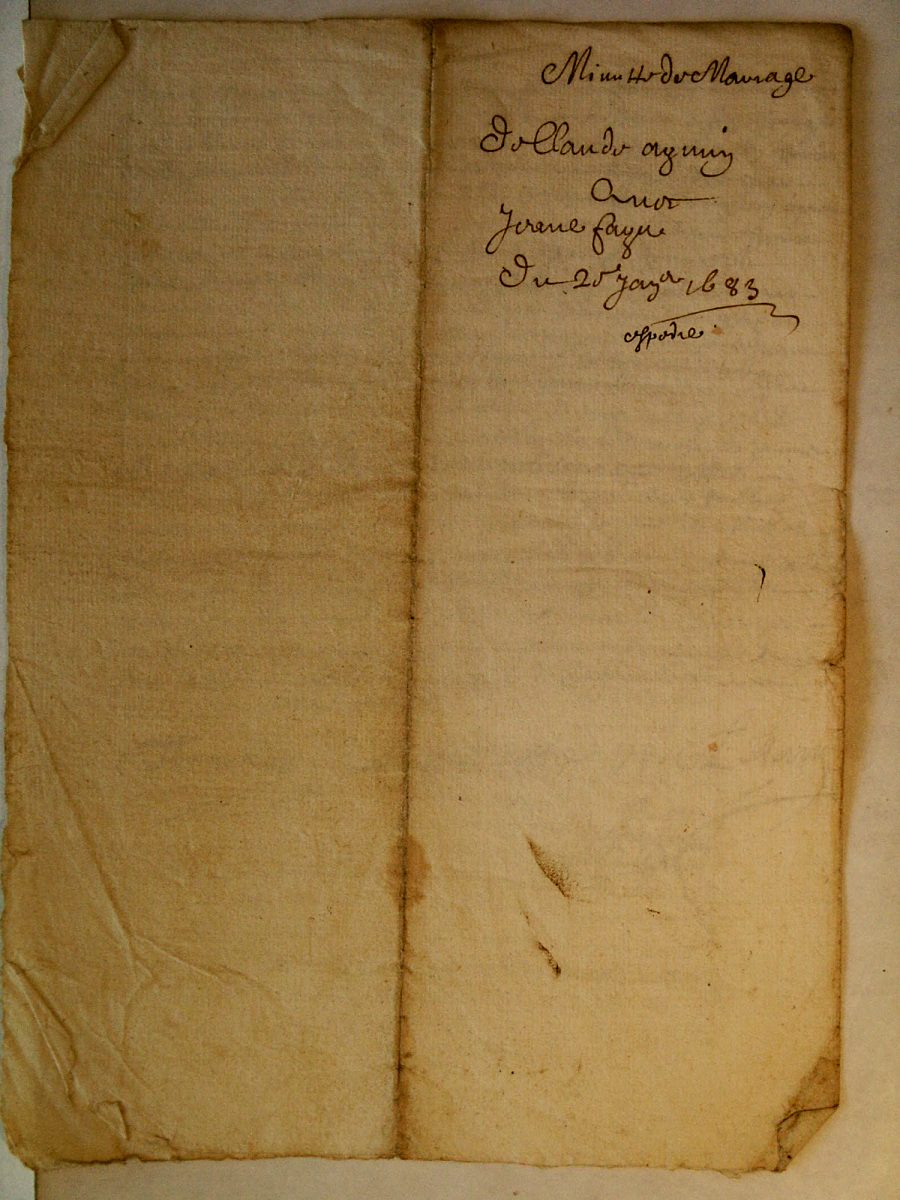 Minutte de Mariage
De Claude aymin
Avec
Jeane fayn
Du 20e Janer 1683
expedie